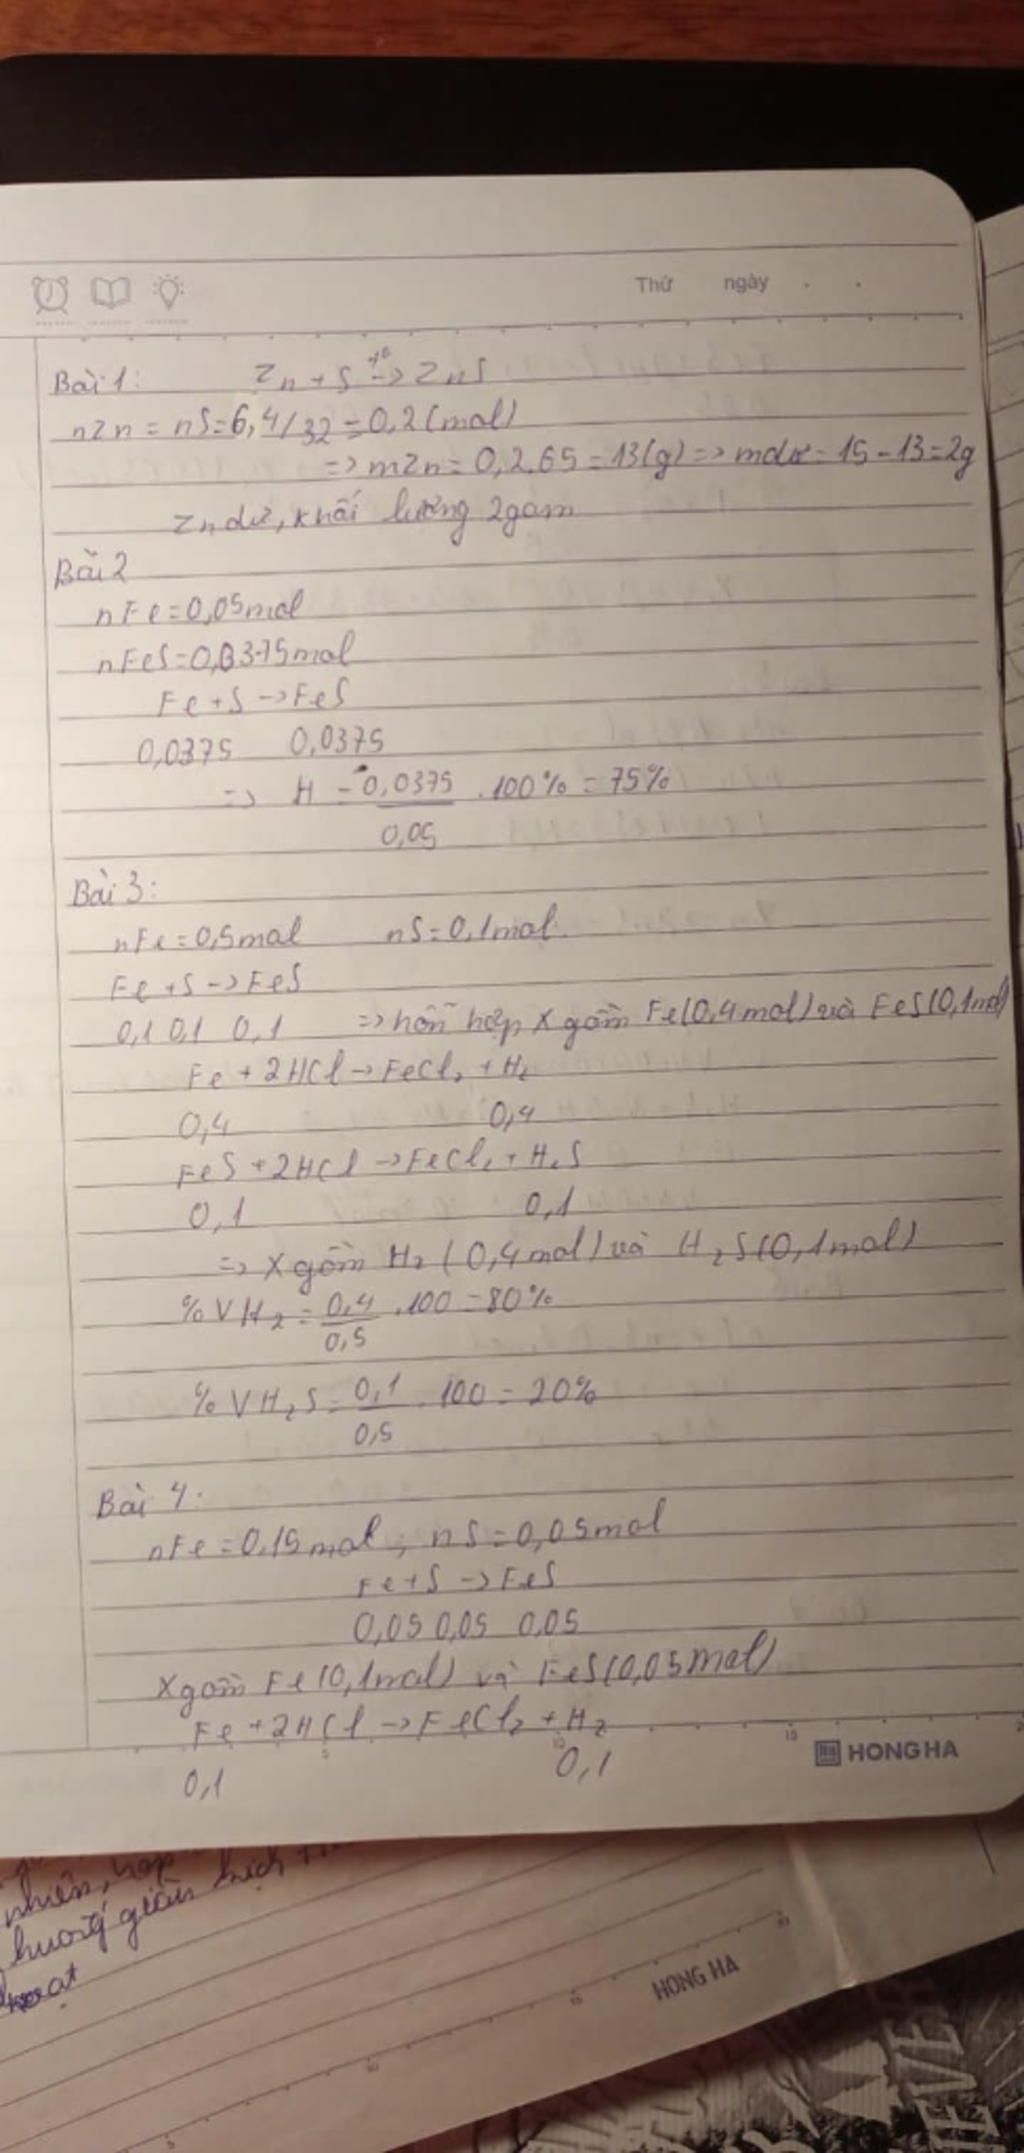 Thứ ngày
Bài 1: Zn + S t° -> ZnS
nZn = nS = 6,4/32 = 0,2 (mol)
=> mZn = 0,2.65 = 13(g) => mdư = 15 - 13 = 2g
Zn dư, khối lượng 2gam
Bài 2
nFe = 0,05mol
nFeS = 0,0375mol
Fe + S -> FeS
0,0375 0,0375
=> H = 0,0375 .100% = 75%
0,05
Bài 3:
nFe = 0,5mol nS = 0,1mol
Fe + S -> FeS
0,1 0,1 0,1 => hỗn hợp X gồm Fe(0,4mol) và FeS(0,1mol)
Fe + 2HCl -> FeCl₂ + H₂
0,4 0,4
FeS + 2HCl -> FeCl₂ + H₂S
0,1 0,1
=> X gồm H₂ (0,4mol) và H₂S(0,1mol)
%VH₂ = 0,4 .100 = 80%
0,5
%VH₂S = 0,1 .100 = 20%
0,5
Bài 4:
nFe = 0,15mol; nS = 0,05mol
Fe + S -> FeS
0,05 0,05 0,05
X gồm Fe(0,1mol) và FeS(0,05mol)
Fe + 2HCl -> FeCl₂ + H₂
5 10 15
HONG HA
0,1 0,1
nhiên, hợp
hướng giàu kịch
HONG HA